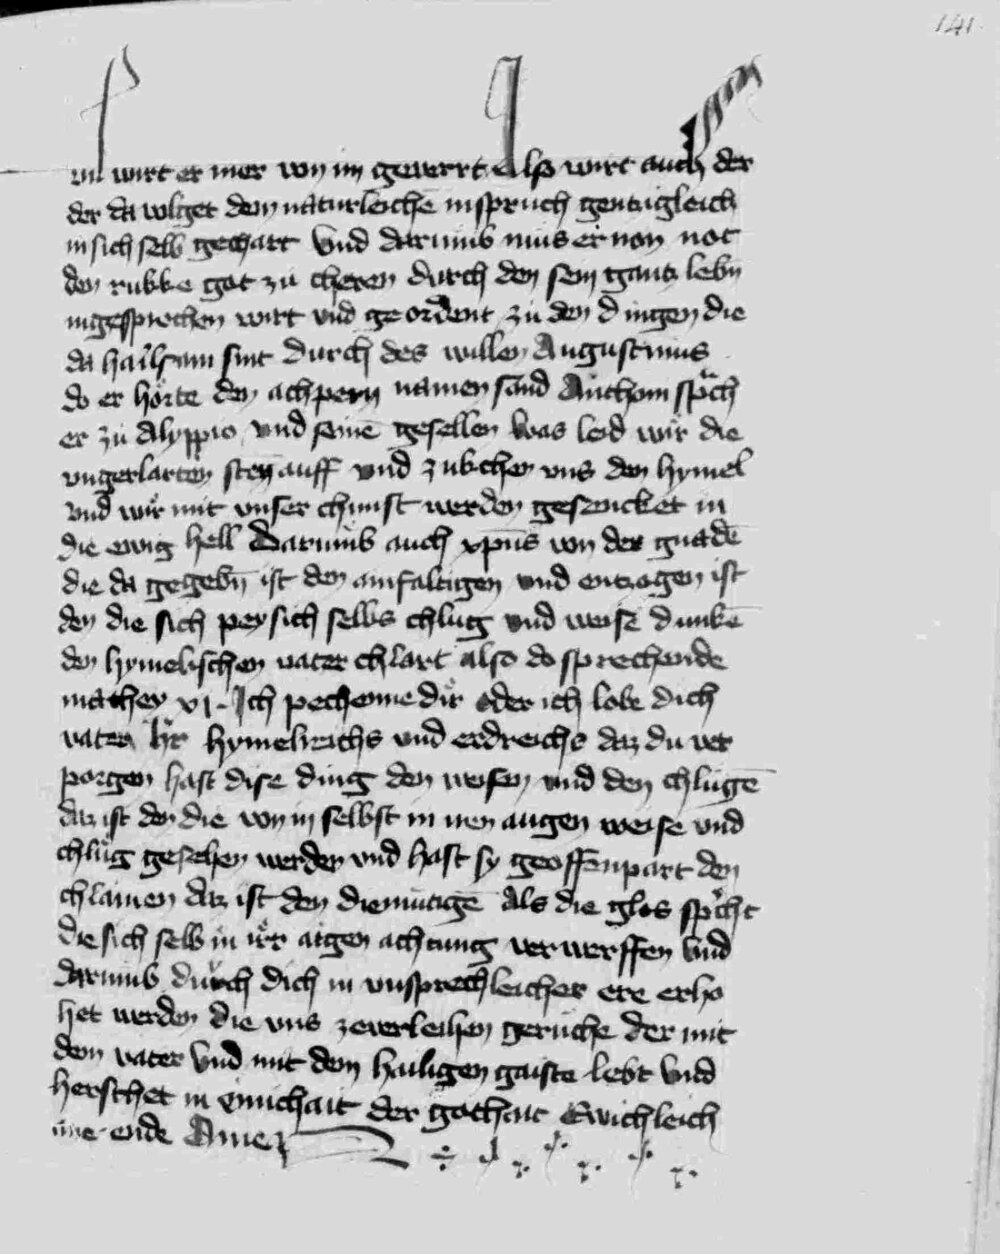 141
vil wirt er mer von im geverrt Also wirt auch der
der da volget dem naturleichē inspruch genczigleich
in sich selb gechart Vnd darumb mus er von not
den rukke got zu cheren durch den sein gantz lebn̄
ingesprochen wirt vnd geordent zu den dingen die
da hailsam sint durch des willen Augustinus
do er horte den achpern namen sand Anthonii sprͣch
er zu Alyppio vnd seinē gesellen Was leid wir die
vngerlarten sten auff vnd zukchen vns den hymel
vnd wir mit vnser chunst werden gesencket in
die ewig hell Darumb auch xpūs von der gnadē
die da gegebn̄ ist den ainfaltigen vnd enczogen ist
den die sich pey sich selbs chlug vnd weise dunkē
den hymelischen vater chlart also do sprechende
mathey xi Ich pechenne dir oder ich lobe dich
vater hr hymelreichs vnd erdreichs daz du ver
porgen hast dise ding den weisen vnd den chlugē
daz ist den die von in selbst in iren augen weise vnd
chlug gesehen werden vnd hast sy geoffenpart den
chlainen daz ist den diemutigē Als die glos sprͥcht
die sich selb in irr aigen achtung verwerffen vnd
darumb durch dich in vnsprechleicher ere erho
het werden die vns zeverleihen geruche der mit
dem vater vnd mit dem hailigen gaiste lebt vnd
herschet in ainichait der gothait Ewichleich
ane ende Amen